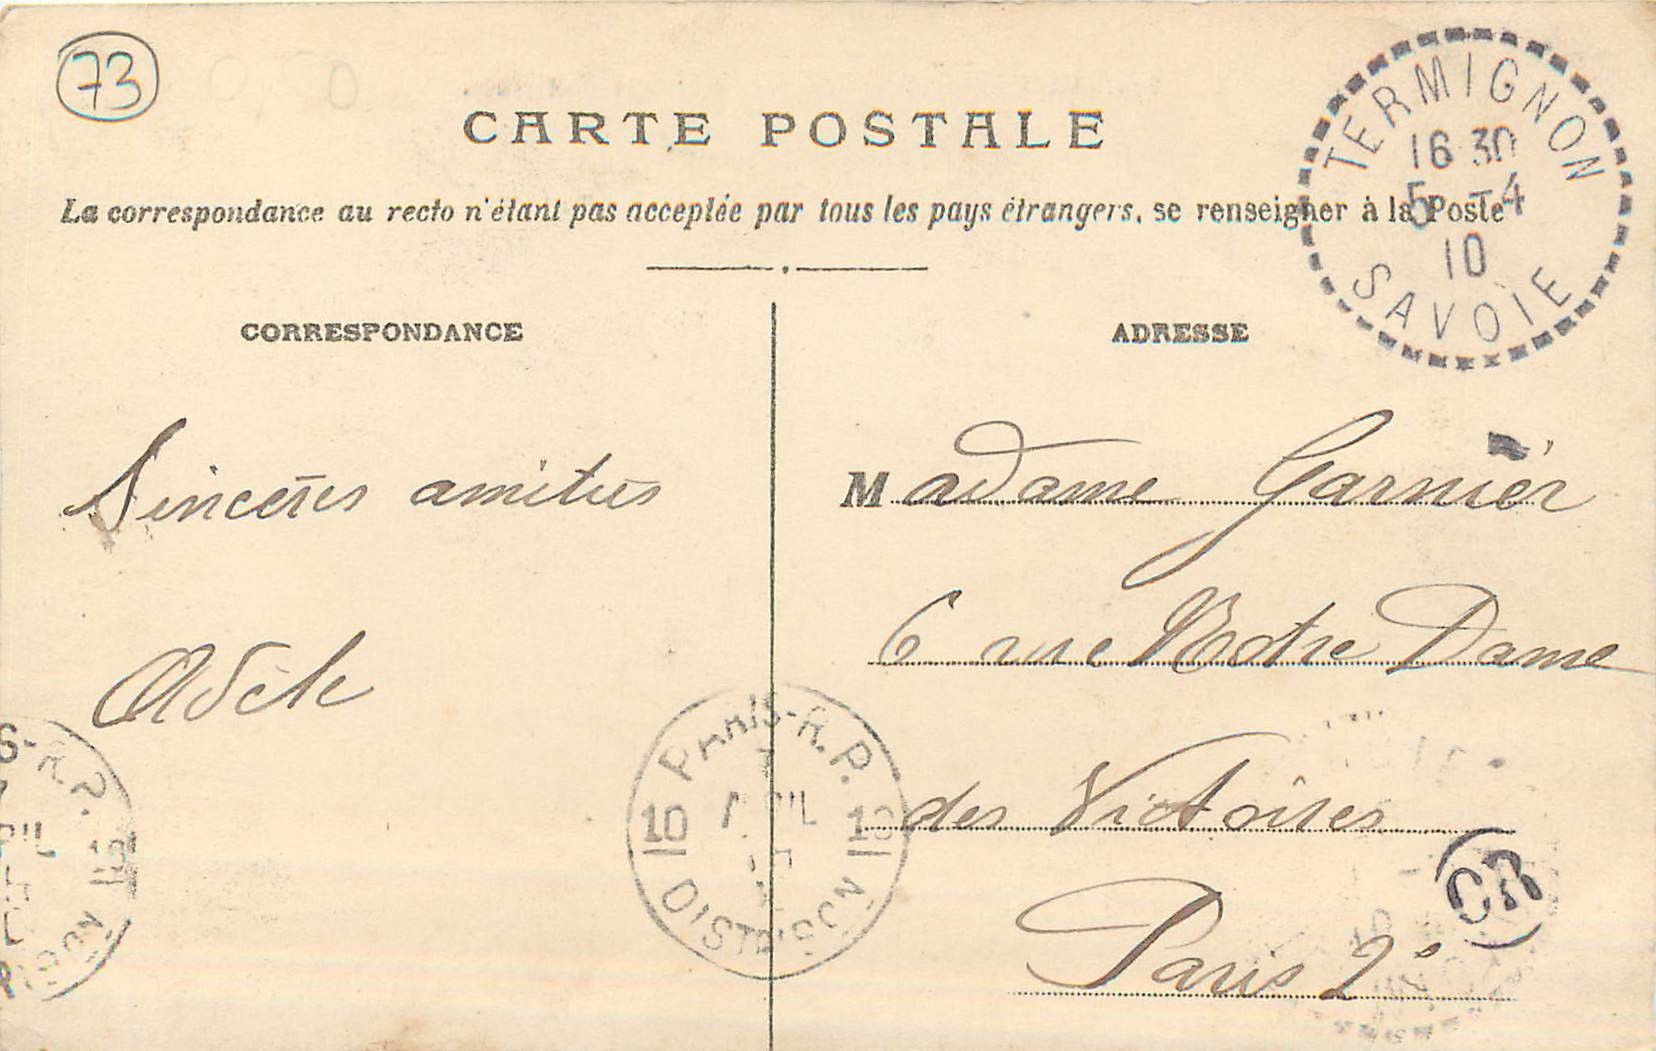 73
CARTE POSTALE
La correspondance au recto n'étant pas acceptée par tous les pays étrangers, se renseigner à la Poste
TERMIGNON
16 30
5 -4
10
SAVOIE
CORRESPONDANCE
ADRESSE
Sincères amitiés
Adèle
Madame Garnier
6 rue Notre Dame
des Victoires
Paris 2e
PARIS-R.P.
10 10
DISTRIBUTION
CR